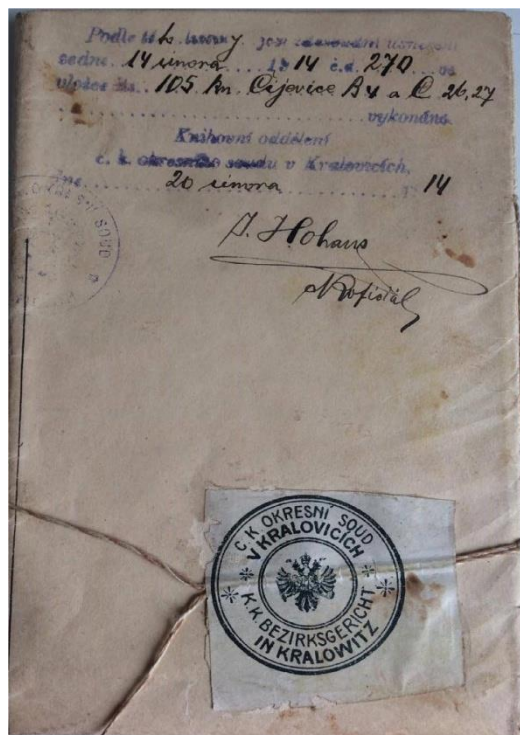 Podle této knihovny jest zdarování usnesení
ze dne 14 února 1914 č.d. 270 ve
vložce čís. 105 kn. Cijevice B 4 a C 26, 27
vykonáno.
Knihovní oddělení
c. k. okresního soudu v Kralovicích,
dne 20 února 1914
J. Hohaus
C. K. OKRESNÍ SOUD
V KRALOVICÍCH
K. K. BEZIRKSGERICHT
IN KRALOWITZ